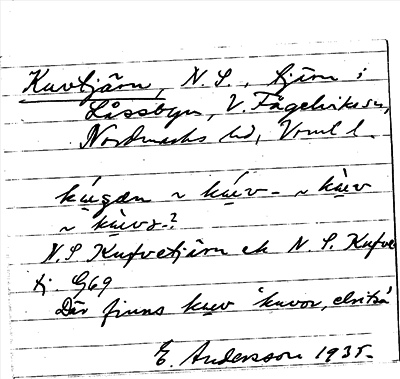 Kuvtjärn, N. S., tjärn i
Låssbyn, V. Fågelviks sn,
Nordmarks hd, Vrml l.
kúgæn ~ kúv- ~ kùv
~ kùvs-?
N. S Kufvetjärn ek N. S. Kufve
tj. G69
Där finns kuv "kuvor, elritsa"
E. Andersson 1935.